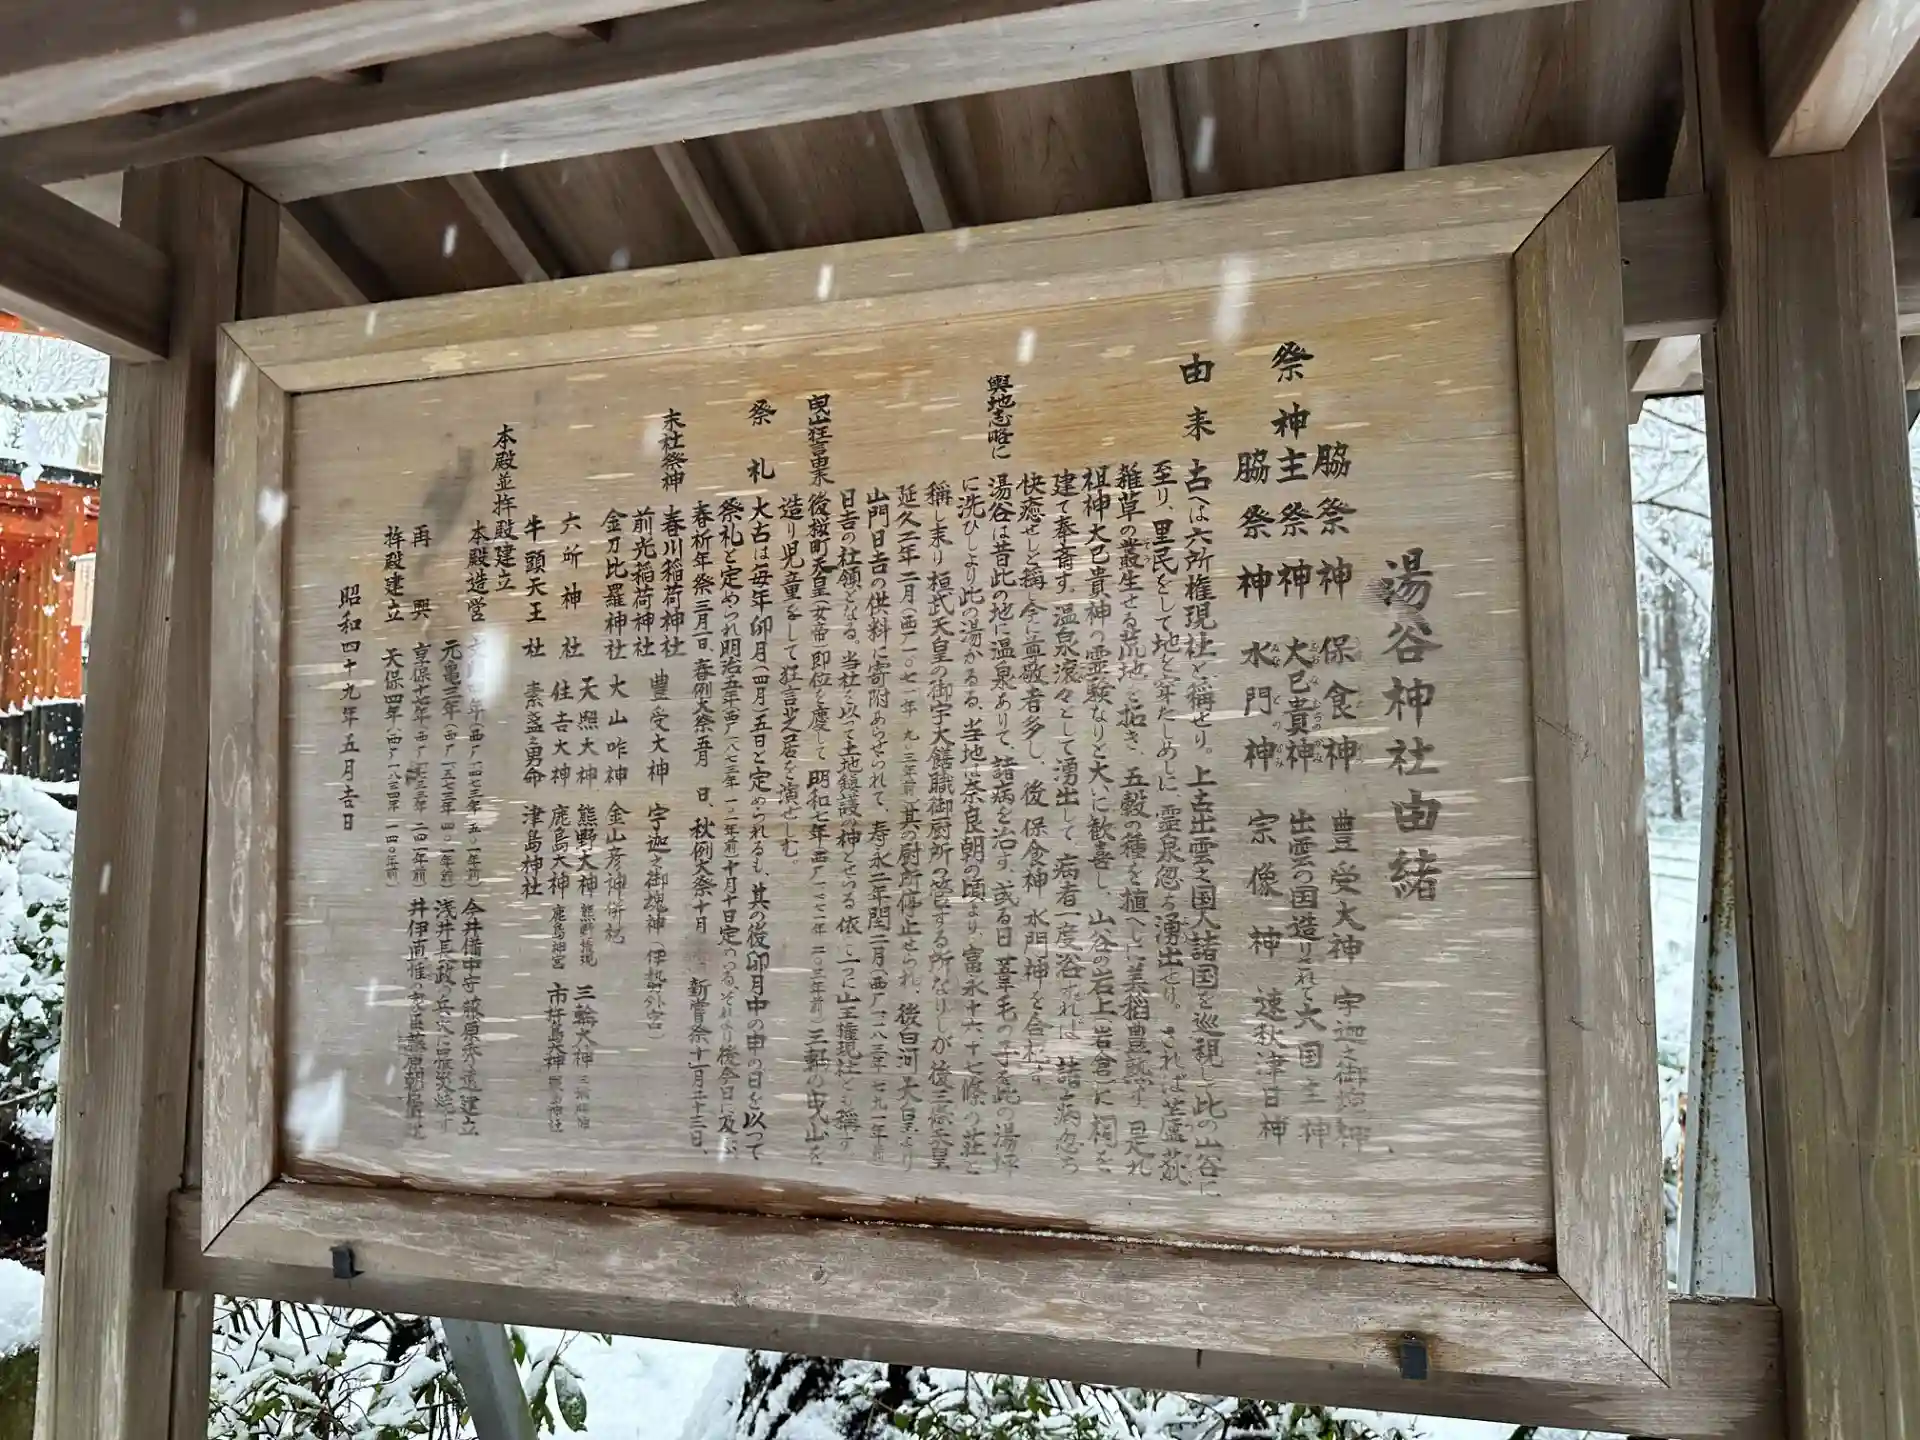 湯谷神社由緒
脇祭神 保食神 豊受大神 宇迦之御魂神
祭神主祭神 大己貴神 出雲の国造りされて大国主神
脇祭神 水門神 宗像神 速秋津日神
由来 古へは六所権現社と称せり。上古出雲之国人諸国を巡視し此の山谷に
至り、里民をして地を穿たしめしに、霊泉忽ち湧出せり。されば芒蘆荻
雑草の叢生せる荒地を拓き、五穀の種を植へしに美稲豊熟す、是れ
祖神大己貴神の霊験なりと大いに歓喜し、山谷の岩上(岩倉)に祠を
建て奉斎す。温泉滾々として湧出して病者一度浴すれば諸病忽ち
快癒せしと稱し今に尊敬者多し、後保食神水門神を合祀す。
輿地志略に 湯谷は昔此の地に温泉ありて、諸病を治す、或る日葦毛の子を此の湯坪
に洗ひしより此の湯かるる、当地は奈良朝の頃より、富永十六、十七條の荘と
稱し来り桓武天皇の御宇大膳職御厨所の管する所なりしが後三條天皇
延久二年二月(西一〇七一年 九〇三年前)其の厨所停止せられ、後白河天皇より
山門日吉の供料に寄附あらせられて、寿永二年閏二月(西一一八三年 七九一年前)
日吉の社領となる。当社を以って土地鎮護の神とせらる依って一つに山王権現社とも稱す
曳山狂言由来 後桜町天皇(女帝)即位を慶して 明和七年(西一七七一年 二〇三年前)三軒の曳山を
造り児童をして狂言芝居を演せしむ。
祭礼 大古は毎年卯月(四月)五日と定められるも、其の後卯月中の申の日を以って
祭礼と定められ明治五年(西一八七二年 一〇二年前)十月十日定めらる、それより後今日に及ぶ、
春祈年祭三月一日、春例大祭五月 日、秋例大祭十月 新嘗祭十一月二十三日、
末社祭神 春川稲荷神社 豊受大神 宇迦之御魂神(伊勢外宮)
前光稲荷神社
金刀比羅神社 大山咋神 金山彦神併祀
六所神社 天照大神 熊野大神 熊野権現 三輪大神
住吉大神 鹿島大神 鹿島神宮 市杵島大神
牛頭天王社 素盞之男命 津島神社
本殿並拝殿建立
本殿造営 年(西一四七三年 五〇一年前)今井備中守藤原秀遠建立
元亀三年(西一五七三年 四〇一年前)浅井長政の兵火に罹災焼す
再興 享保十七年(西一七三三年 二四一年前)井伊直惟の家臣藤原朝
拝殿建立 天保四年(西一八三四年 一四〇年前)
昭和四十九年五月吉日